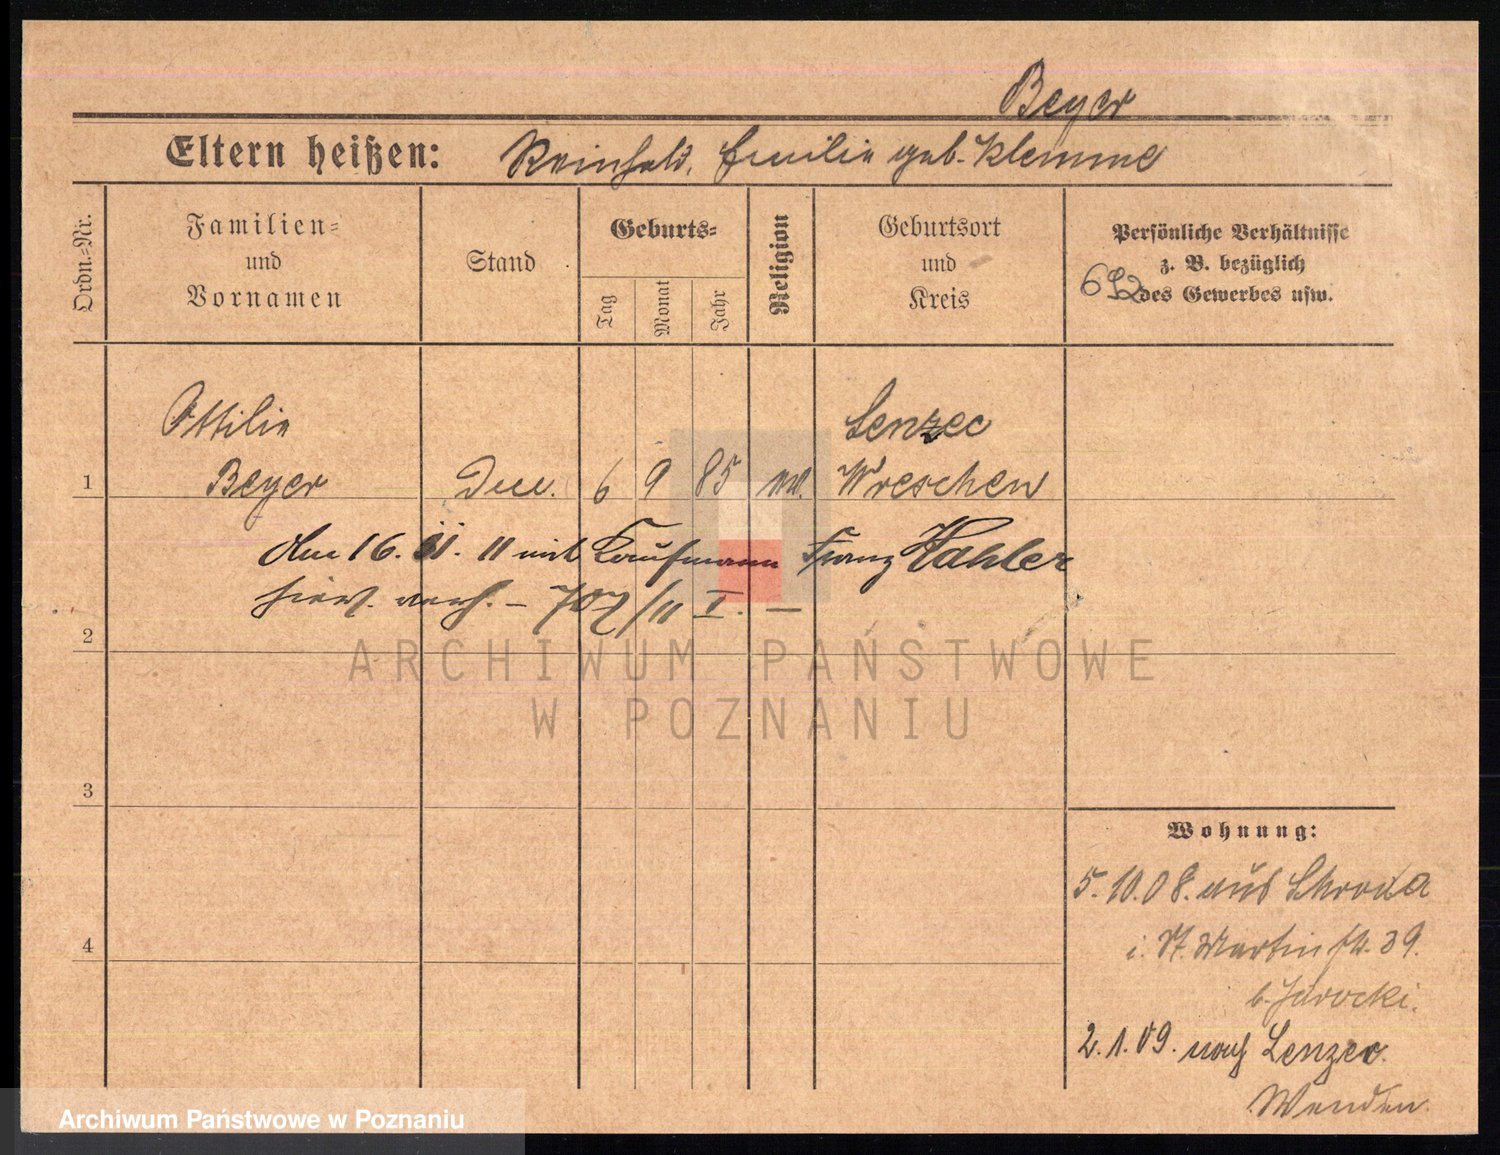 Beyer
Eltern heißen: Reinhold, Emilie geb. Klemme
Ordn.=Nr.
Familien=
und
Vornamen
Stand
Geburts=
Tag
Monat
Jahr
Religion
Geburtsort
und
Kreis
Persönliche Verhältnisse
z. B. bezüglich
des Gewerbes usw.
Ottilie
Lenzec
1 Beyer 6 9 85 Wreschen
den 16. 11 mit Kaufmann Franz Hahler
verh. – 707/11 I. –
2
3
4
Wohnung:
5.10.08. aus Schroda
Martinstr. 39.
b. Jarocki.
2.1.09. nach Lenzec
ARCHIWUM PAŃSTWOWE
W POZNANIU
Archiwum Państwowe w Poznaniu